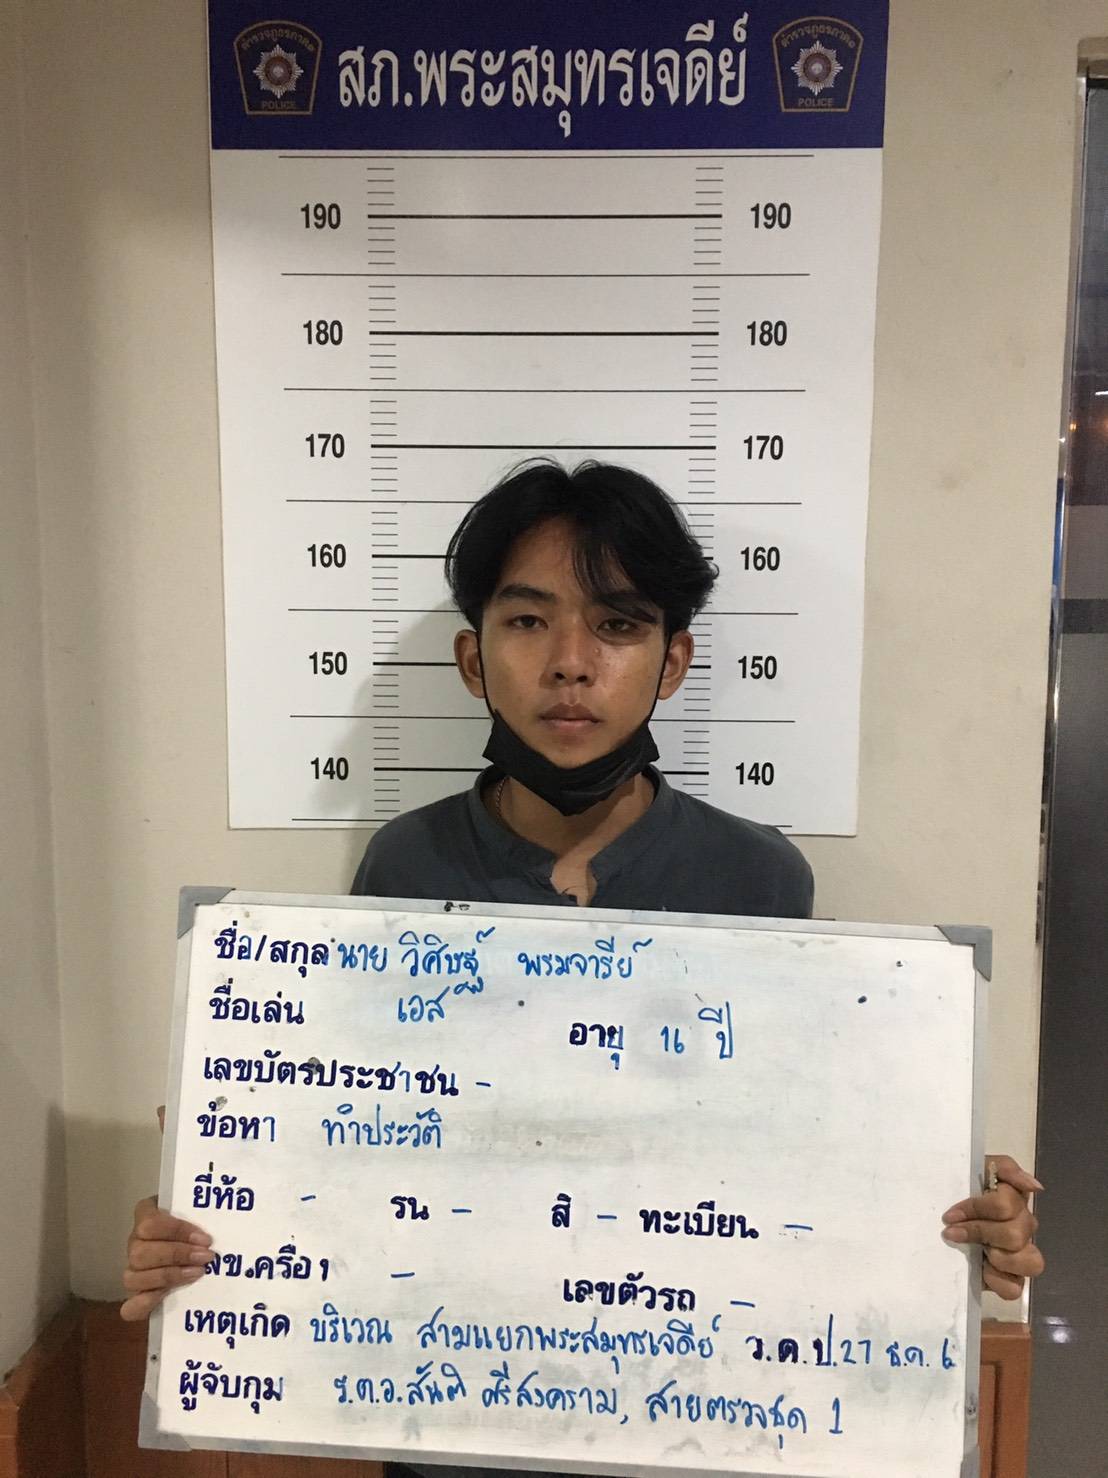 ตำรวจภูธรภาค๑ POLICE
สภ.พระสมุทรเจดีย์
ตำรวจภูธรภาค๑ POLICE
190 190
180 180
170 170
160 160
150 150
140 140
ชื่อ/สกุล นาย วิศิษฐ์ พรมจารีย์
ชื่อเล่น เอส อายุ 16 ปี
เลขบัตรประชาชน -
ข้อหา ทำประวัติ
ยี่ห้อ - รุน - สี - ทะเบียน -
ลข.ครื่อง - เลขตัวรถ -
เหตุเกิด บริเวณ สามแยกพระสมุทรเจดีย์ ว.ด.ป.27 ธ.ค. 6
ผู้จับกุม ร.ต.อ.สันติ ศรีสงคราม, สายตรวจชุด 1